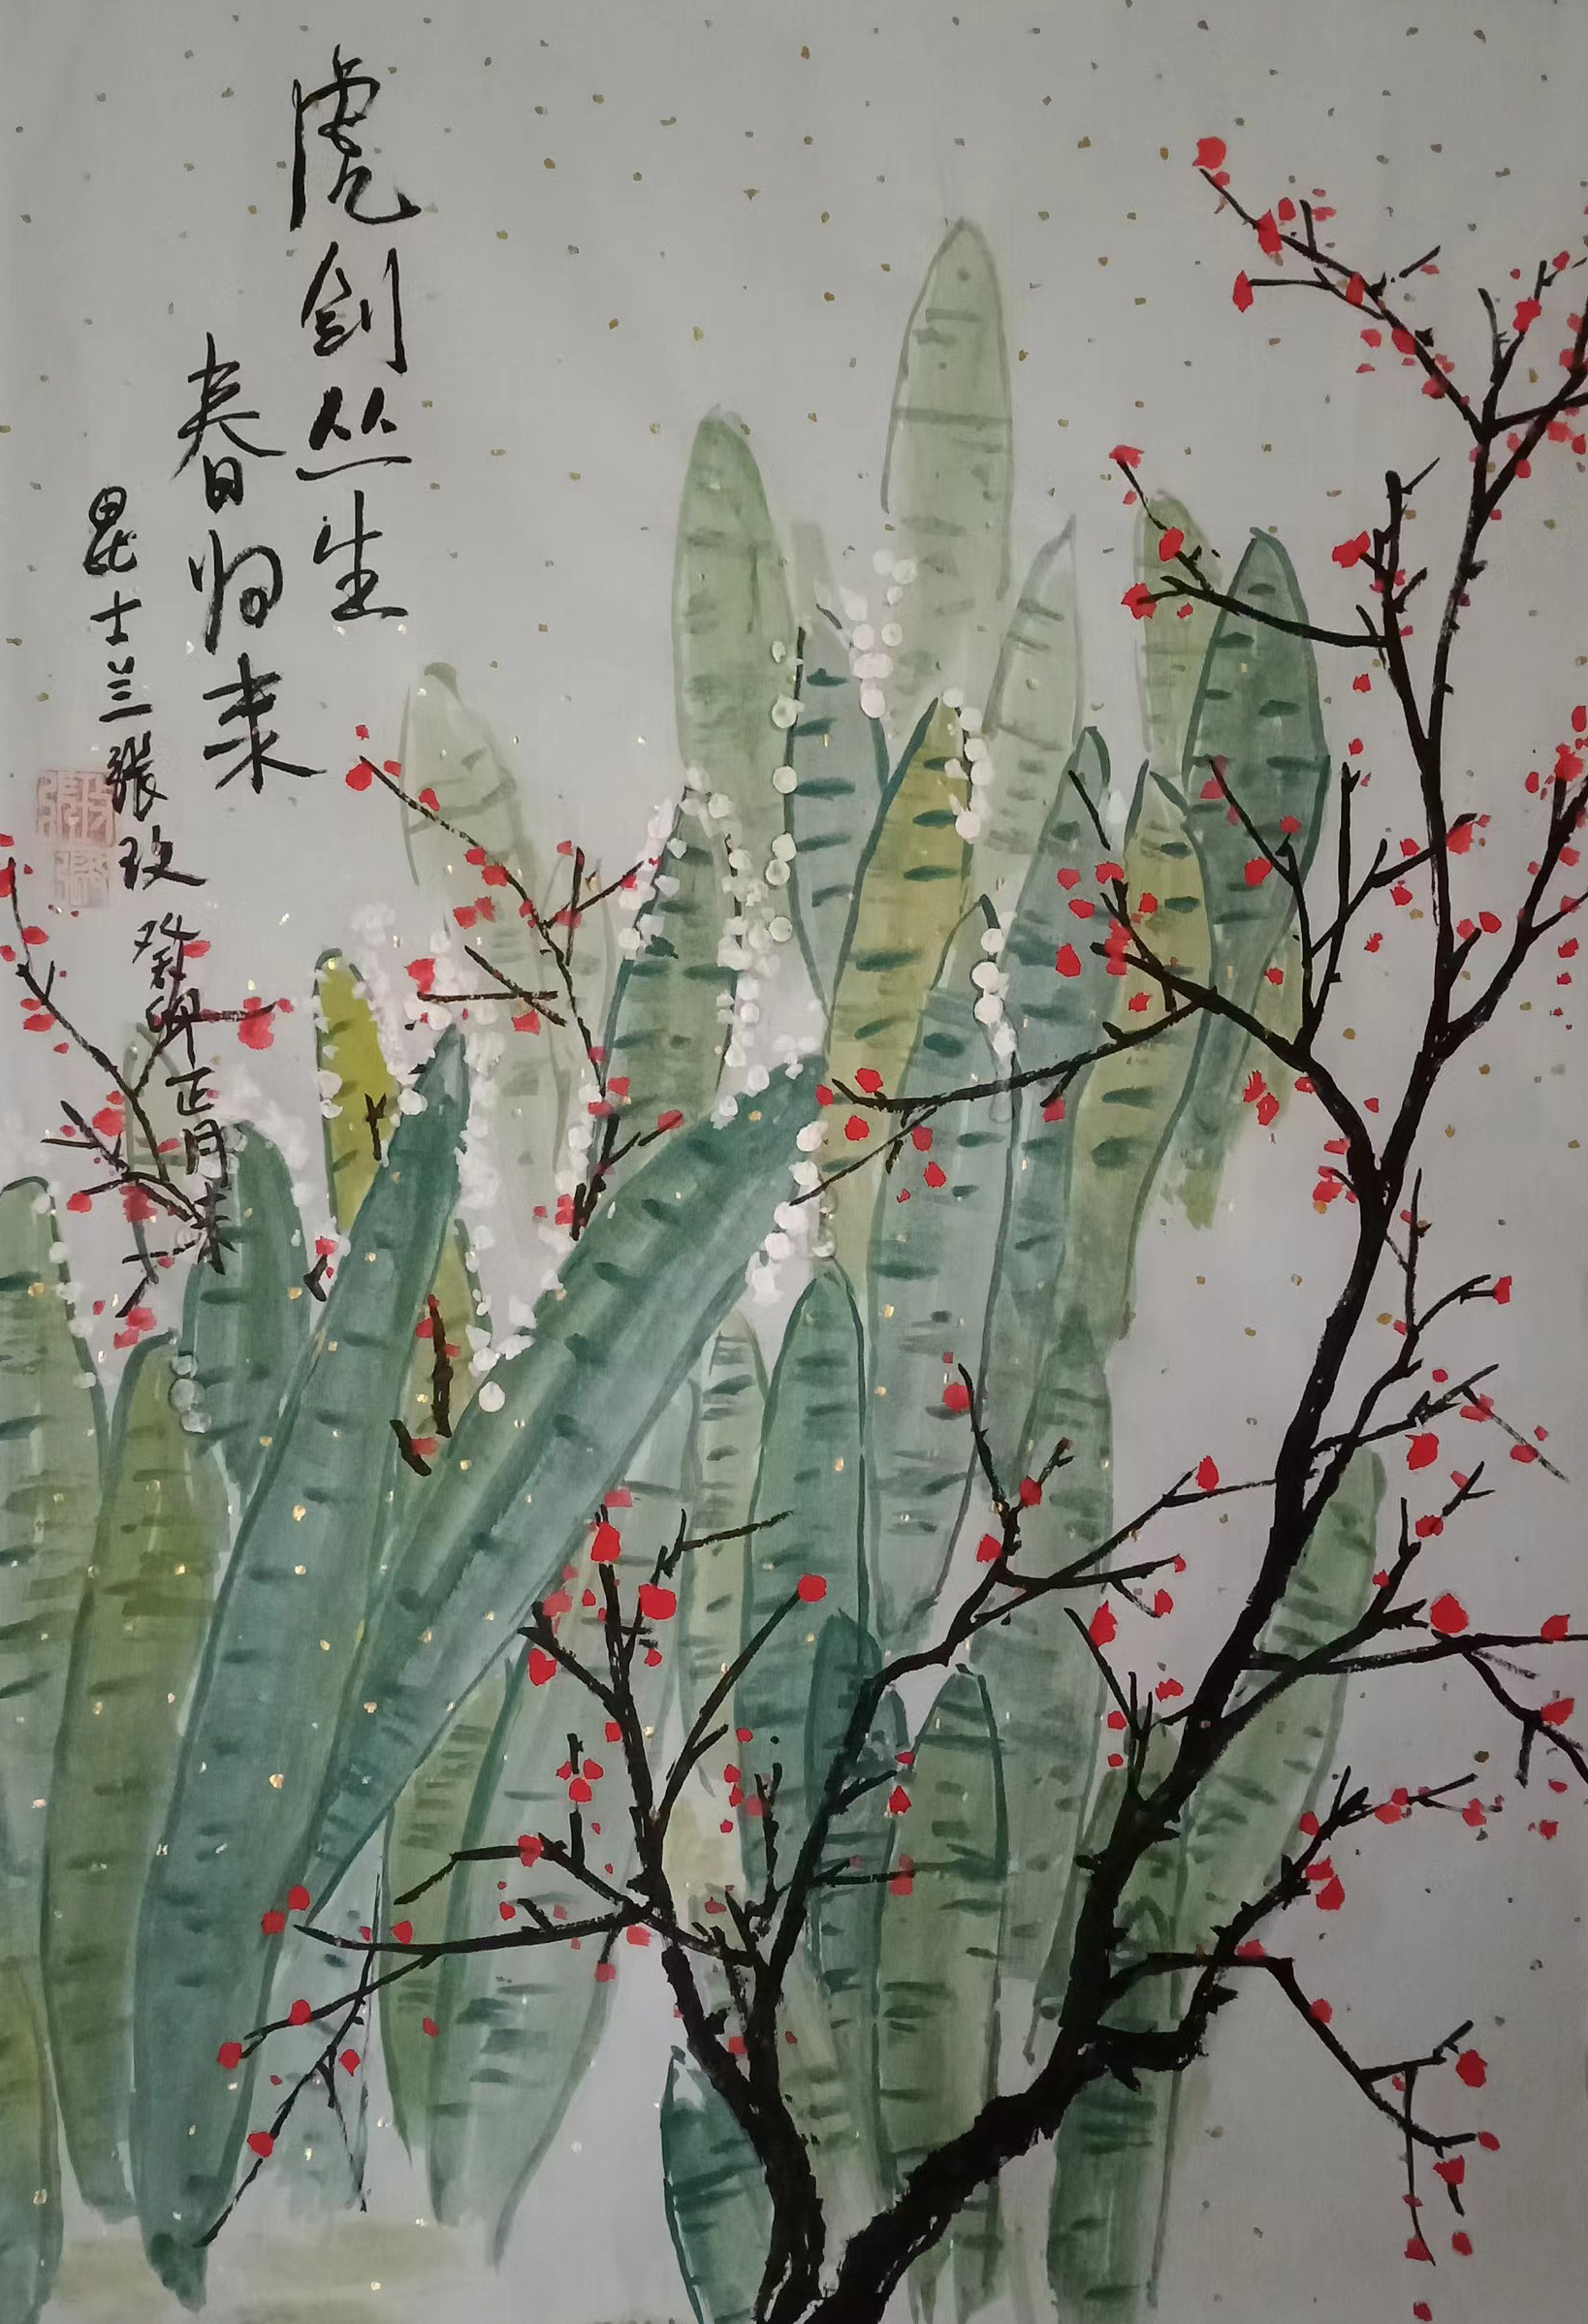 虎剑丛生
春归来
昆士兰张玫癸卯正月末